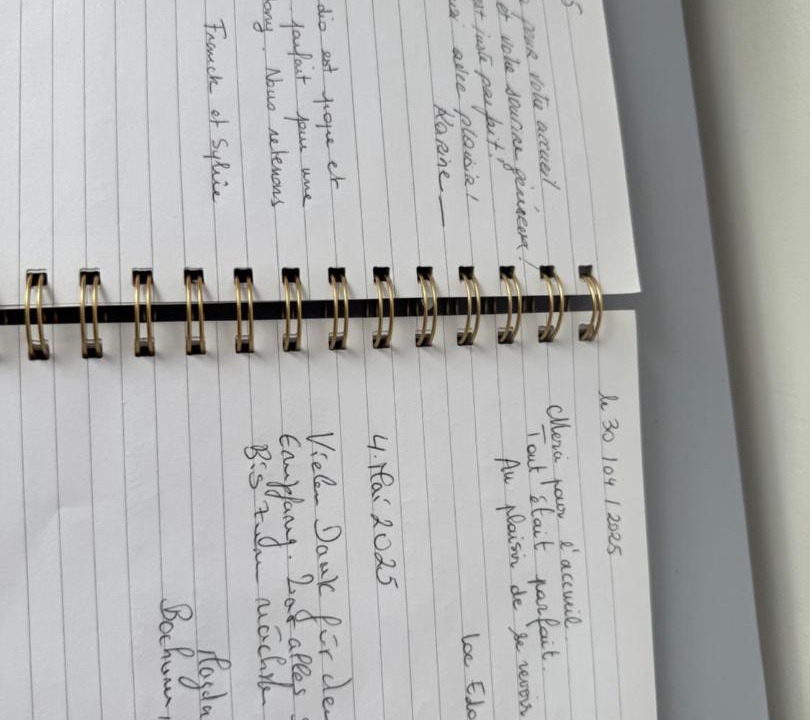 5
pour votre accueil
et votre sourire généreux !
est juste parfait,
avec plaisir !
Karine
est propre et
parfait pour une
Nous retenons
Franck et Sylvie
le 30/04/2025
Merci pour l'accueil.
Tout était parfait.
Au plaisir de se revoir
4. Mai 2025
Vielen Dank für den
Empfang. alles
Bis zum nächsten
Magda
Bochum,